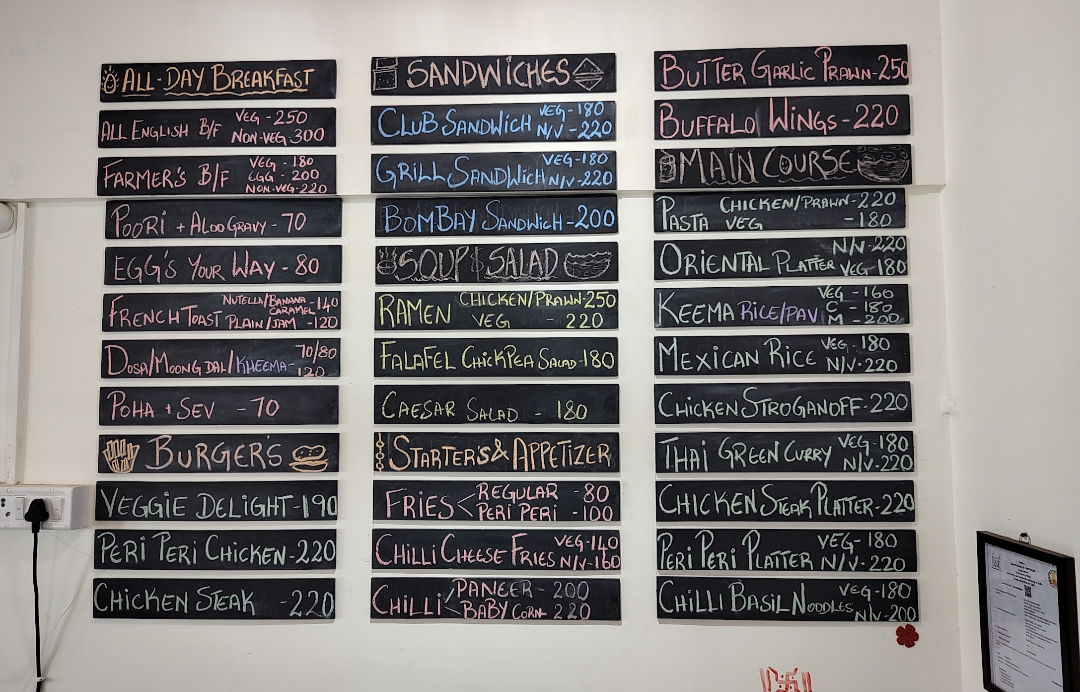 ALL-DAY BREAKFAST
ALL ENGLISH B/F VEG - 250
NON-VEG. 300
FARMER'S B/F VEG - 180
EGG - 200
NON-VEG-220
POORI + ALOO GRAVY - 70
EGG'S YOUR WAY - 80
FRENCH TOAST NUTELLA/BANANA CARAMEL -140
PLAIN/JAM -120
DOSA/MOONG DAL/KHEEMA- 70/80
120
POHA + SEV - 70
BURGER'S
VEGGIE DELIGHT-190
PERI PERI CHICKEN-220
CHICKEN STEAK -220
SANDWICHES
CLUB SANDWICH VEG-180
N/V-220
GRILL SANDWICH VEG-180
N/V-220
BOMBAY SANDWICH-200
SOUP & SALAD
RAMEN CHICKEN/PRAWN-250
VEG - 220
FALAFEL CHICKPEA SALAD-180
CAESAR SALAD - 180
STARTER'S & APPETIZER
FRIES < REGULAR - 80
PERI PERI - 100
CHILLI CHEESE FRIES VEG-140
N/V-160
CHILLI < PANEER - 200
BABY CORN- 220
BUTTER GARLIC PRAWN-250
BUFFALO WINGS-220
MAIN COURSE
PASTA CHICKEN/PRAWN-220
VEG - 180
ORIENTAL PLATTER N/V-220
VEG-180
KEEMA RICE/PAV VEG - 160
C - 180
M - 200
MEXICAN RICE VEG - 180
N/V-220
CHICKEN STROGANOFF-220
THAI GREEN CURRY VEG-180
N/V-220
CHICKEN STEAK PLATTER-220
PERI PERI PLATTER VEG- 180
N/V- 220
CHILLI BASIL NOODLES VEG-180
N/V-200